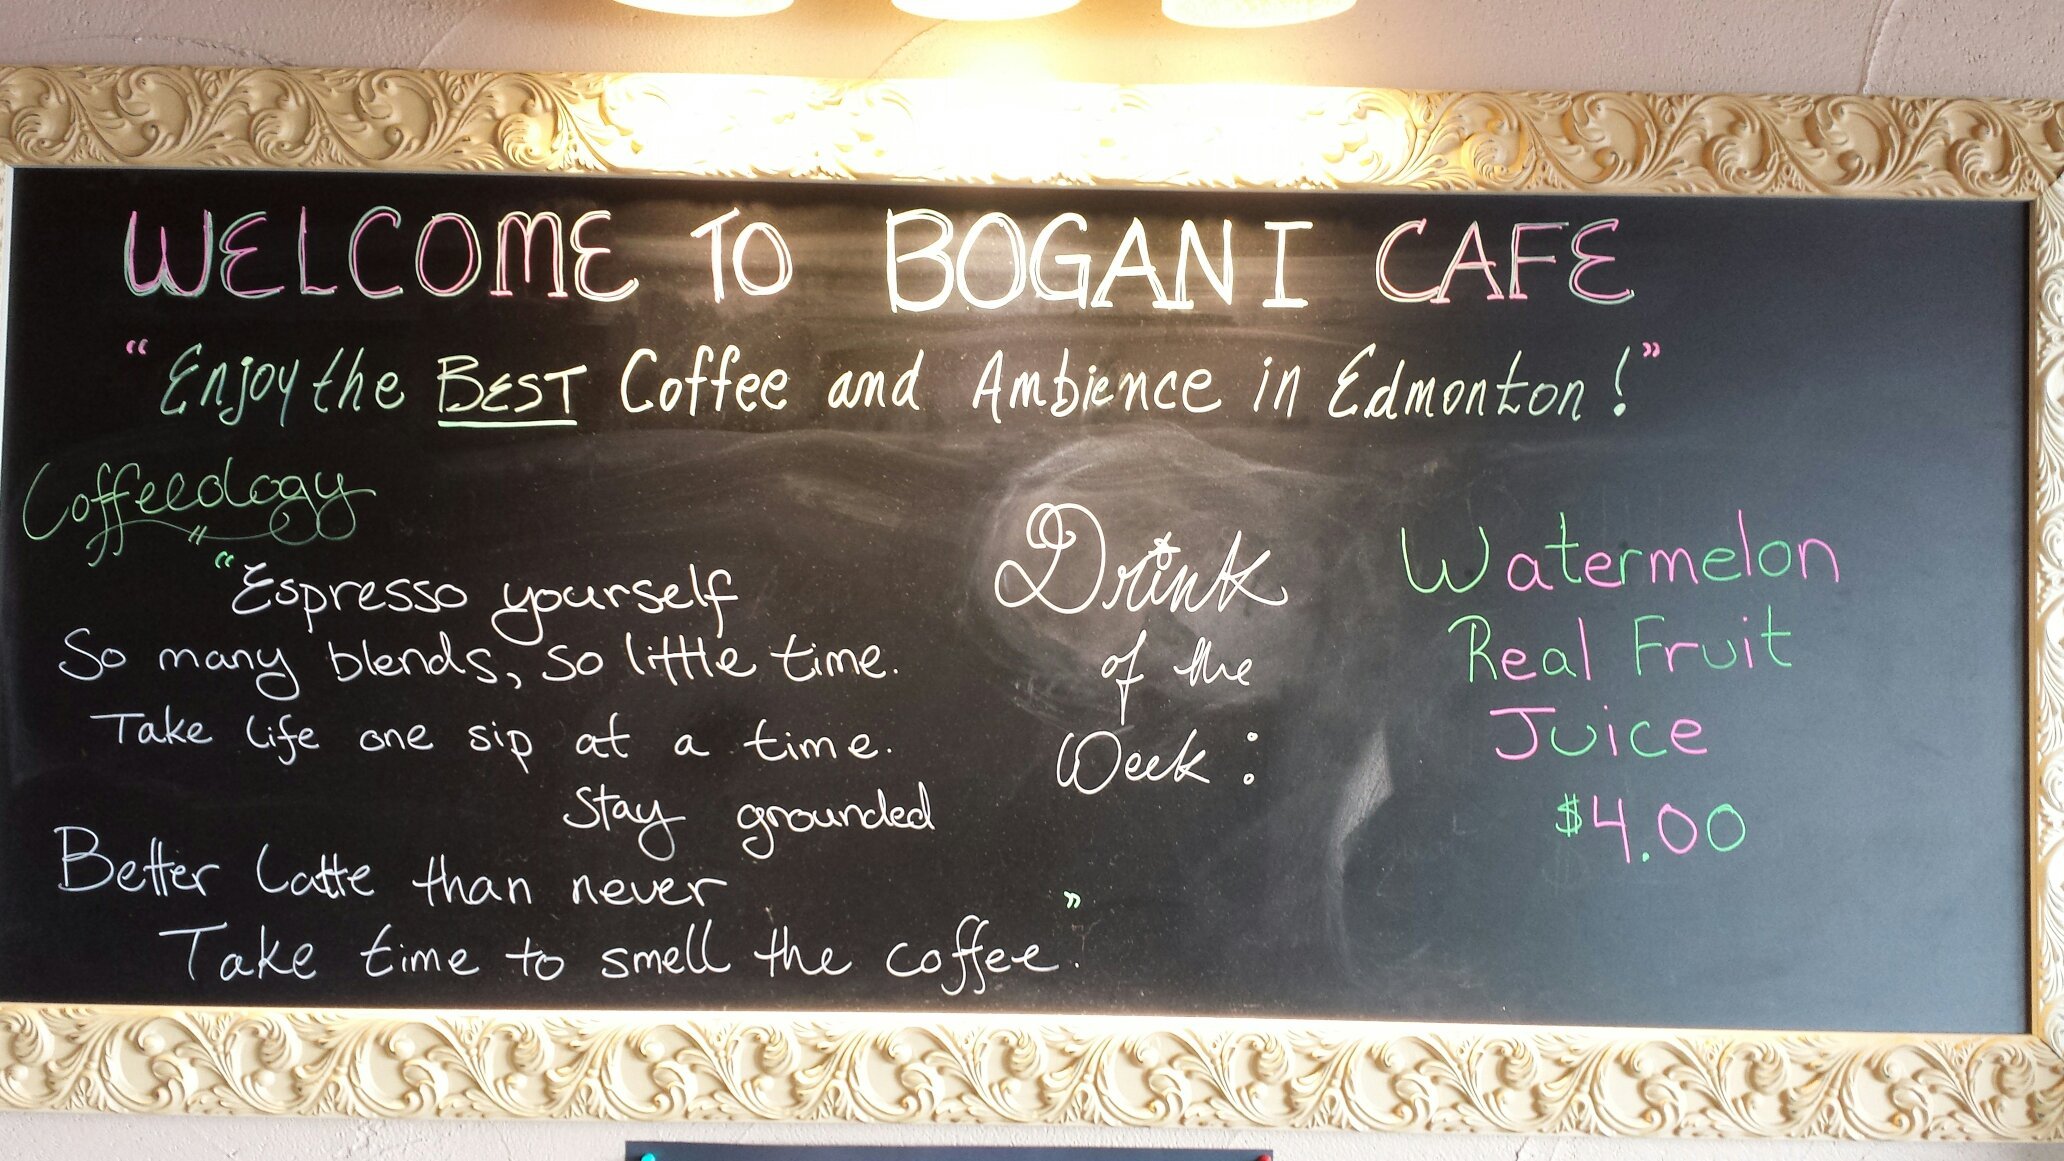 WELCOME TO BOGANI CAFE
"Enjoy the BEST Coffee and Ambience in Edmonton!"
Coffeeology
"Espresso yourself
So many blends, so little time.
Take life one sip at a time.
Stay grounded
Better latte than never
Take time to smell the coffee."
Drink
of the
Week:
Watermelon
Real Fruit
Juice
$4.00